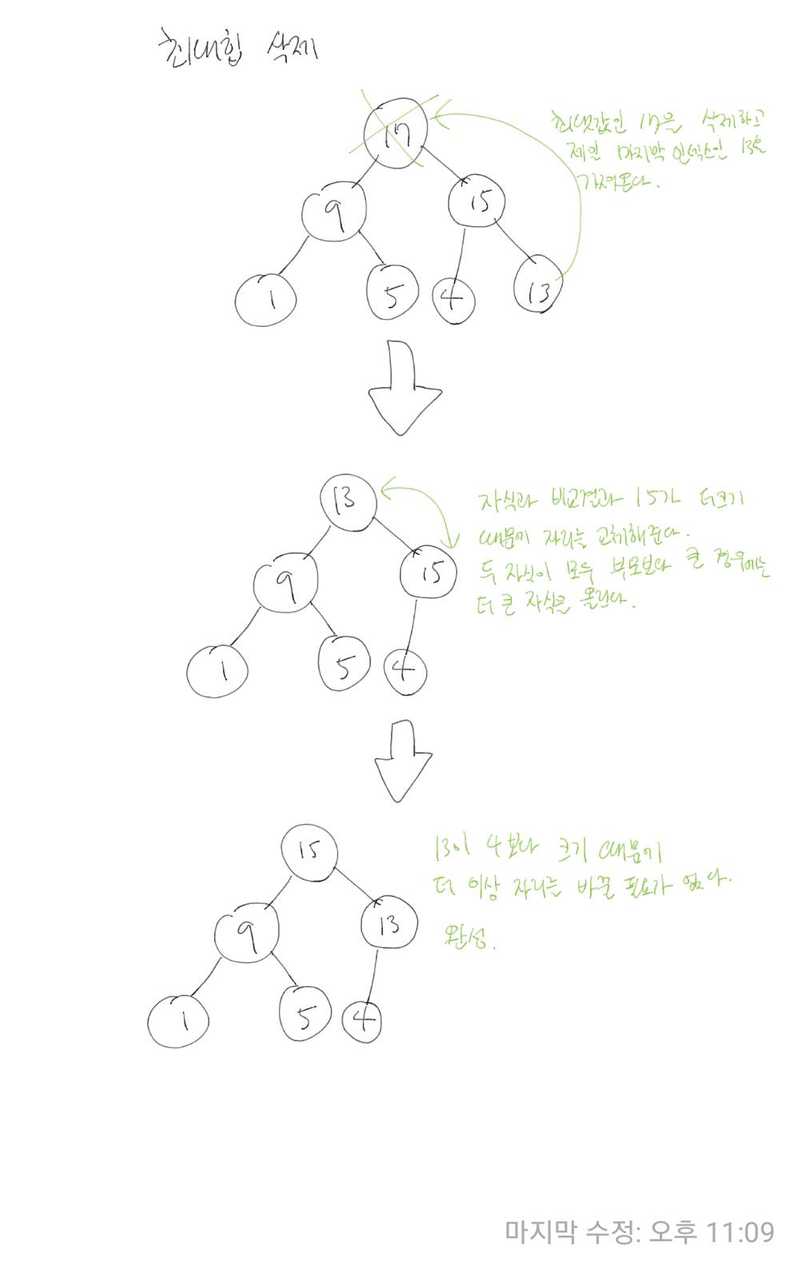 최대힙 삭제
17
최댓값인 17을 삭제하고
제일 마지막 인덱스인 13을
가져온다.
9 15
1 5 4 13
13
자식과 비교결과 15가 더크기
때문에 자리를 교체해준다.
두 자식이 모두 부모보다 큰 경우에는
더 큰 자식을 올린다.
9 15
1 5 4
15
13이 4보다 크기 때문에
더 이상 자리를 바꿀 필요가 없다.
9 13
완성.
1 5 4
마지막 수정: 오후 11:09